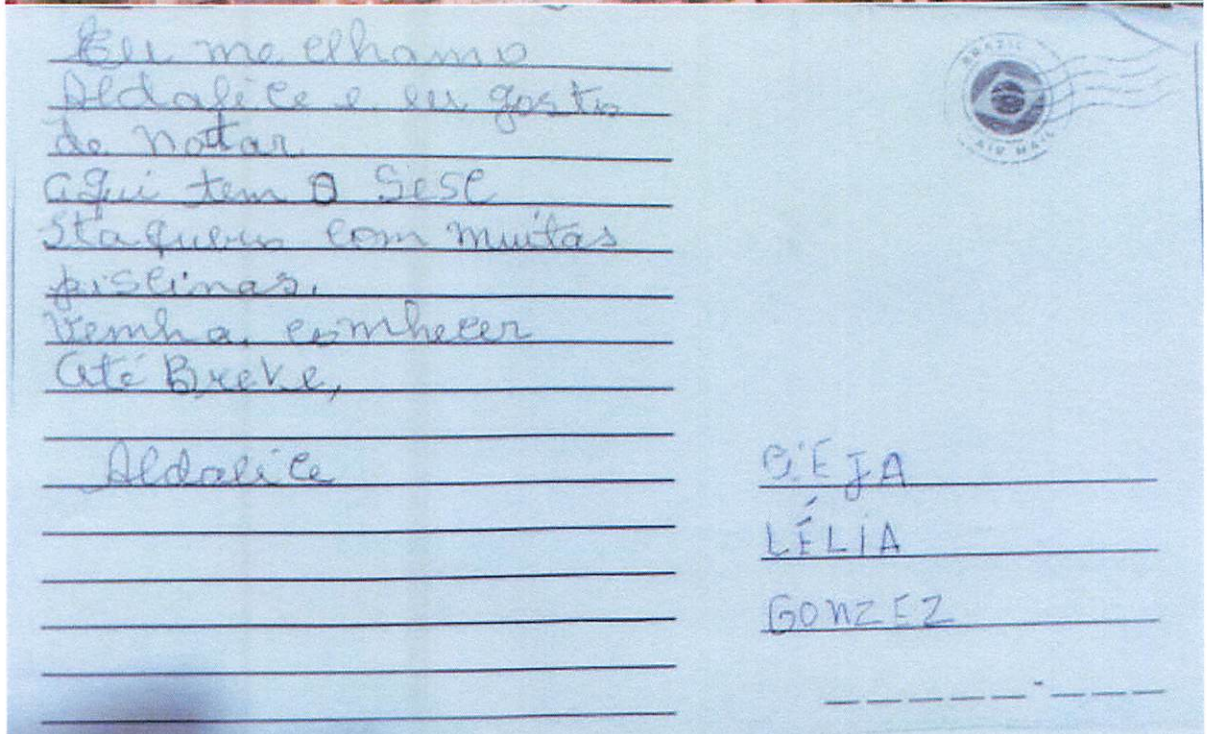 Eu me chamo
Aldalice e eu gosto
de notar
aqui tem o Sesc
Itaquera com muitas
piscinas.
Venha conhecer
até Breve,
Aldalice
BRAZIL
AIR MAIL
CIEJA
LÉLIA
GONZEZ